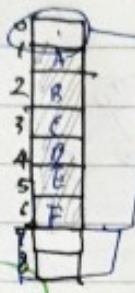 0
1 A
2 B
3 C
4 D
5 E
6 F
7
8